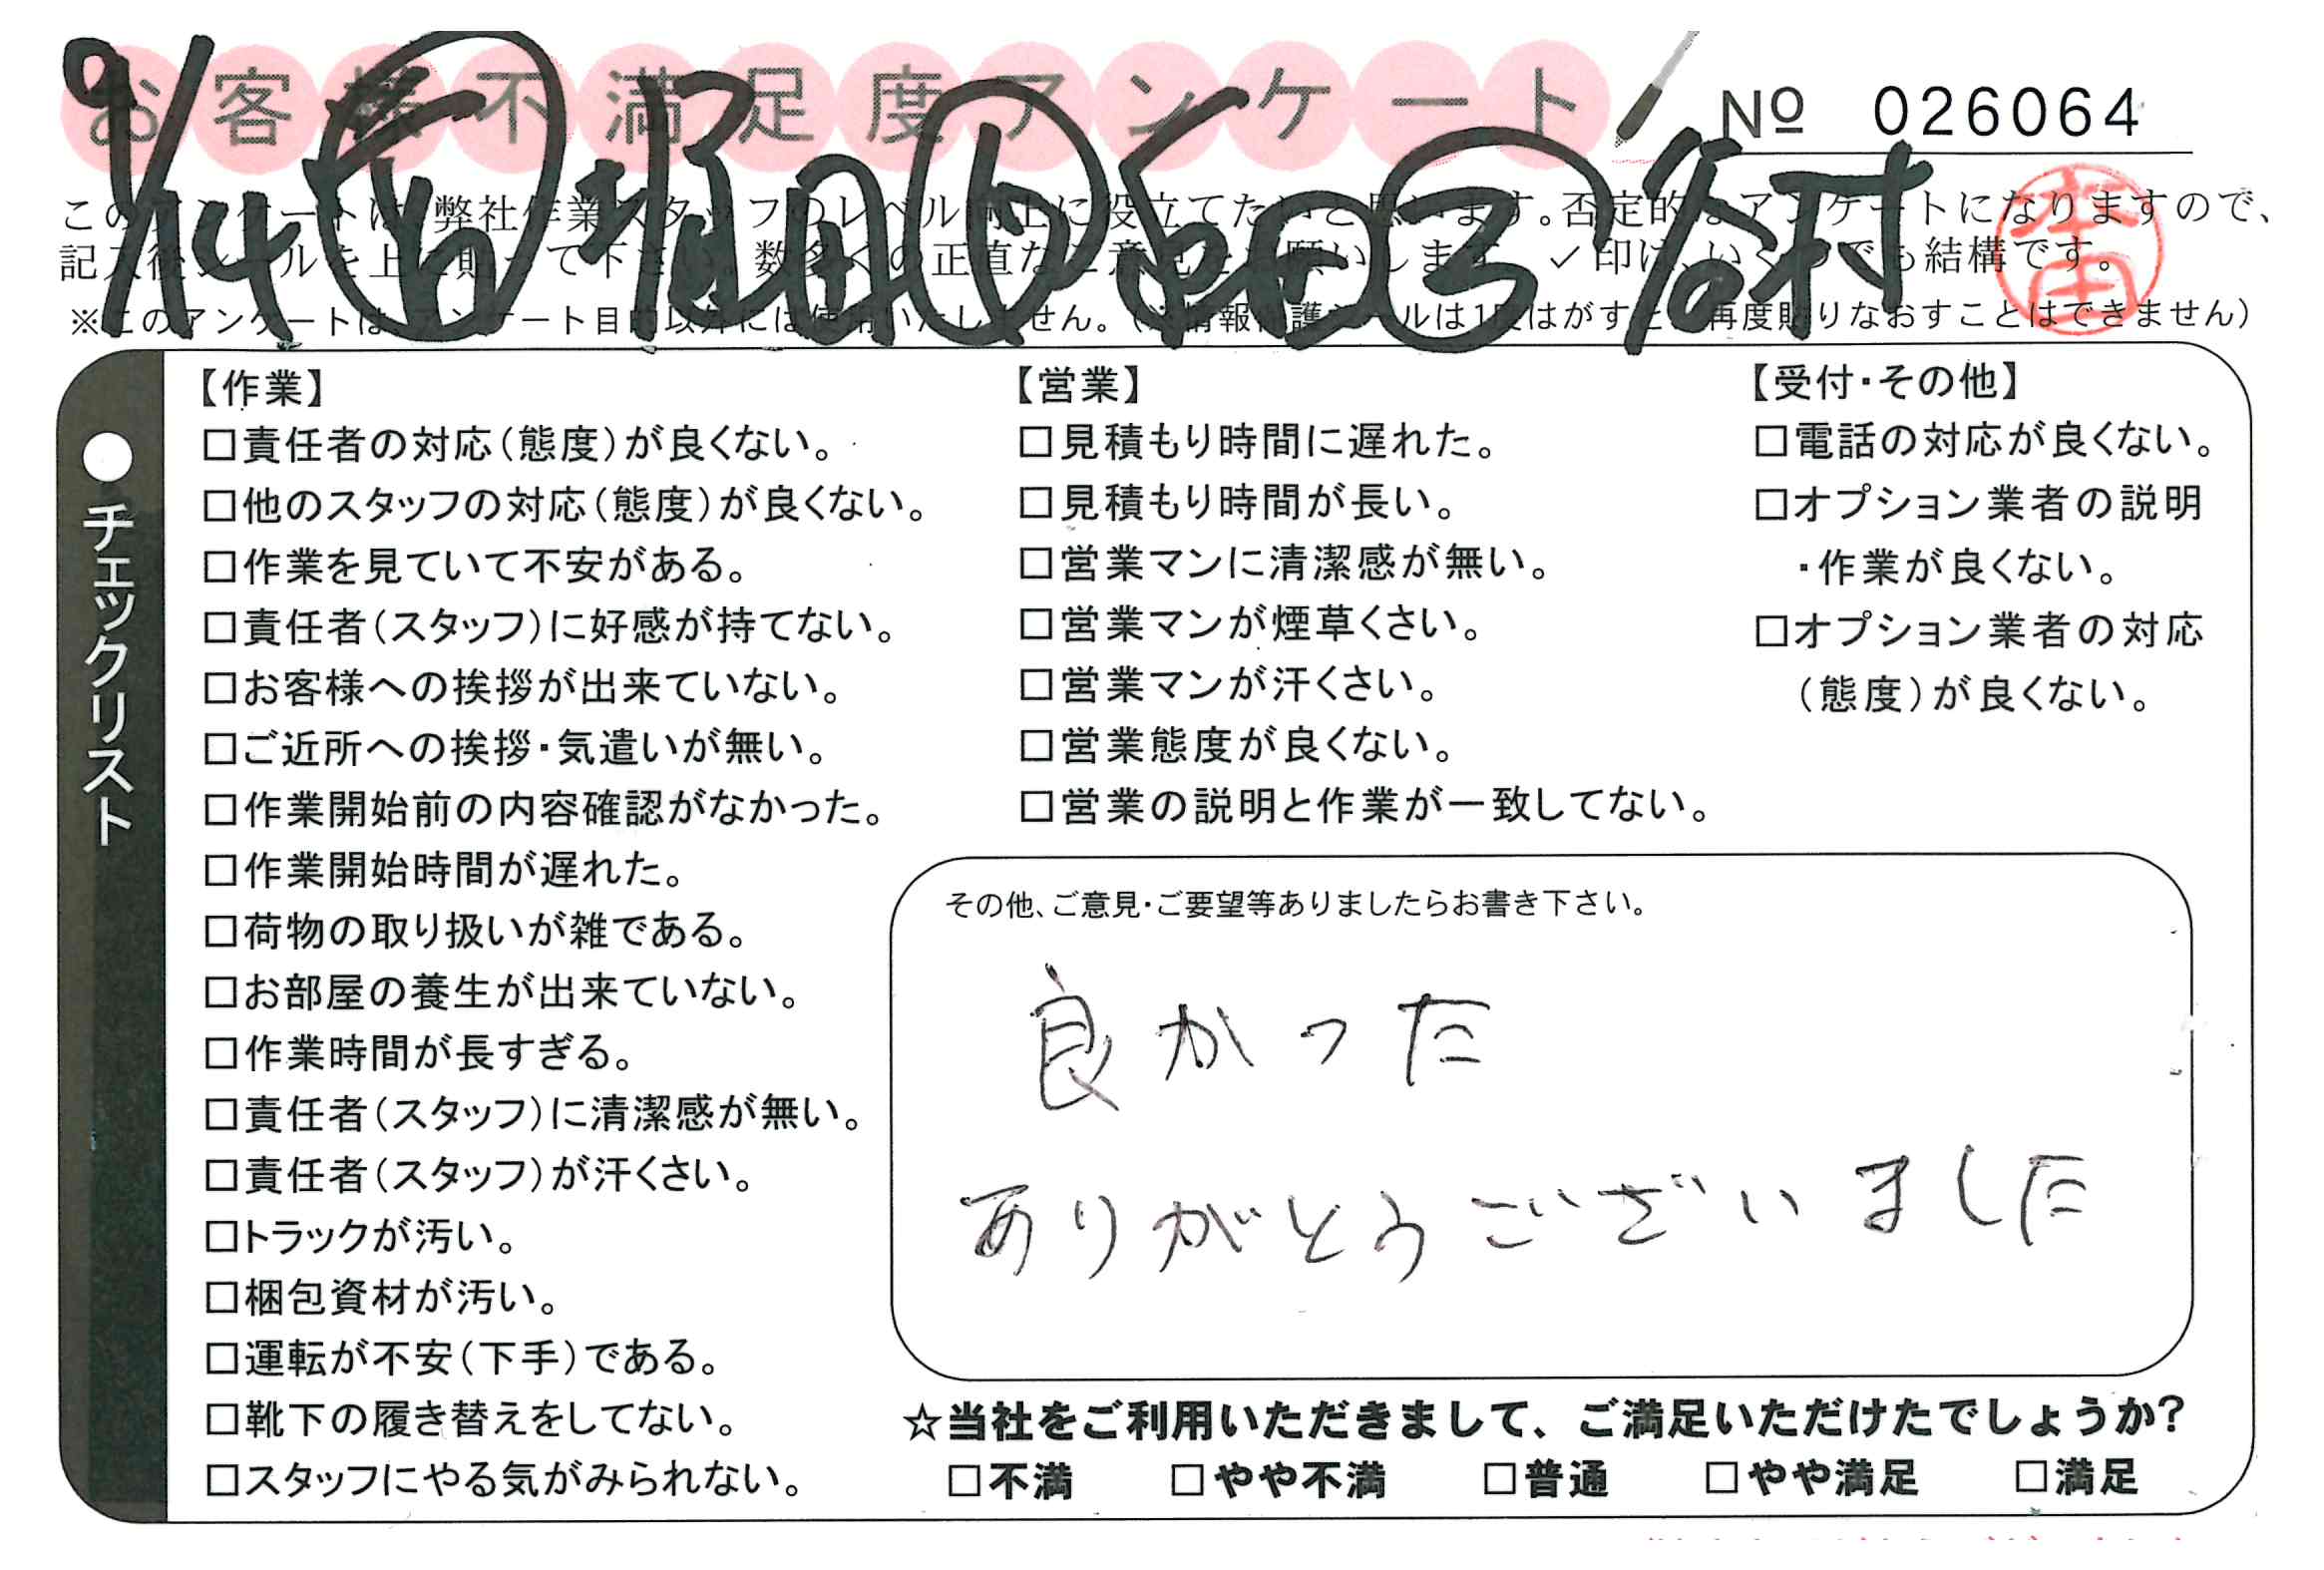 お客様不満足度アンケート
№ 026064
9/14 堀田 谷村
このアンケートは、弊社作業スタッフのレベル向上に役立てたいと思います。否定的なアンケートになりますので、
記入後シールを上に貼って下さい。数多くの正直なご意見をお願いします。✓印は、いくつでも結構です。
※このアンケートは、アンケート目的以外には使用いたしません。(※情報保護シールは1度はがすと、再度貼りなおすことはできません)
●チェックリスト
【作業】
□責任者の対応(態度)が良くない。
□他のスタッフの対応(態度)が良くない。
□作業を見ていて不安がある。
□責任者(スタッフ)に好感が持てない。
□お客様への挨拶が出来ていない。
□ご近所への挨拶・気遣いが無い。
□作業開始前の内容確認がなかった。
□作業開始時間が遅れた。
□荷物の取り扱いが雑である。
□お部屋の養生が出来ていない。
□作業時間が長すぎる。
□責任者(スタッフ)に清潔感が無い。
□責任者(スタッフ)が汗くさい。
□トラックが汚い。
□梱包資材が汚い。
□運転が不安(下手)である。
□靴下の履き替えをしてない。
□スタッフにやる気がみられない。
【営業】
□見積もり時間に遅れた。
□見積もり時間が長い。
□営業マンに清潔感が無い。
□営業マンが煙草くさい。
□営業マンが汗くさい。
□営業態度が良くない。
□営業の説明と作業が一致してない。
【受付・その他】
□電話の対応が良くない。
□オプション業者の説明
・作業が良くない。
□オプション業者の対応
(態度)が良くない。
その他、ご意見・ご要望等ありましたらお書き下さい。
良かった
ありがとうございました
☆当社をご利用いただきまして、ご満足いただけたでしょうか?
□不満 □やや不満 □普通 □やや満足 □満足